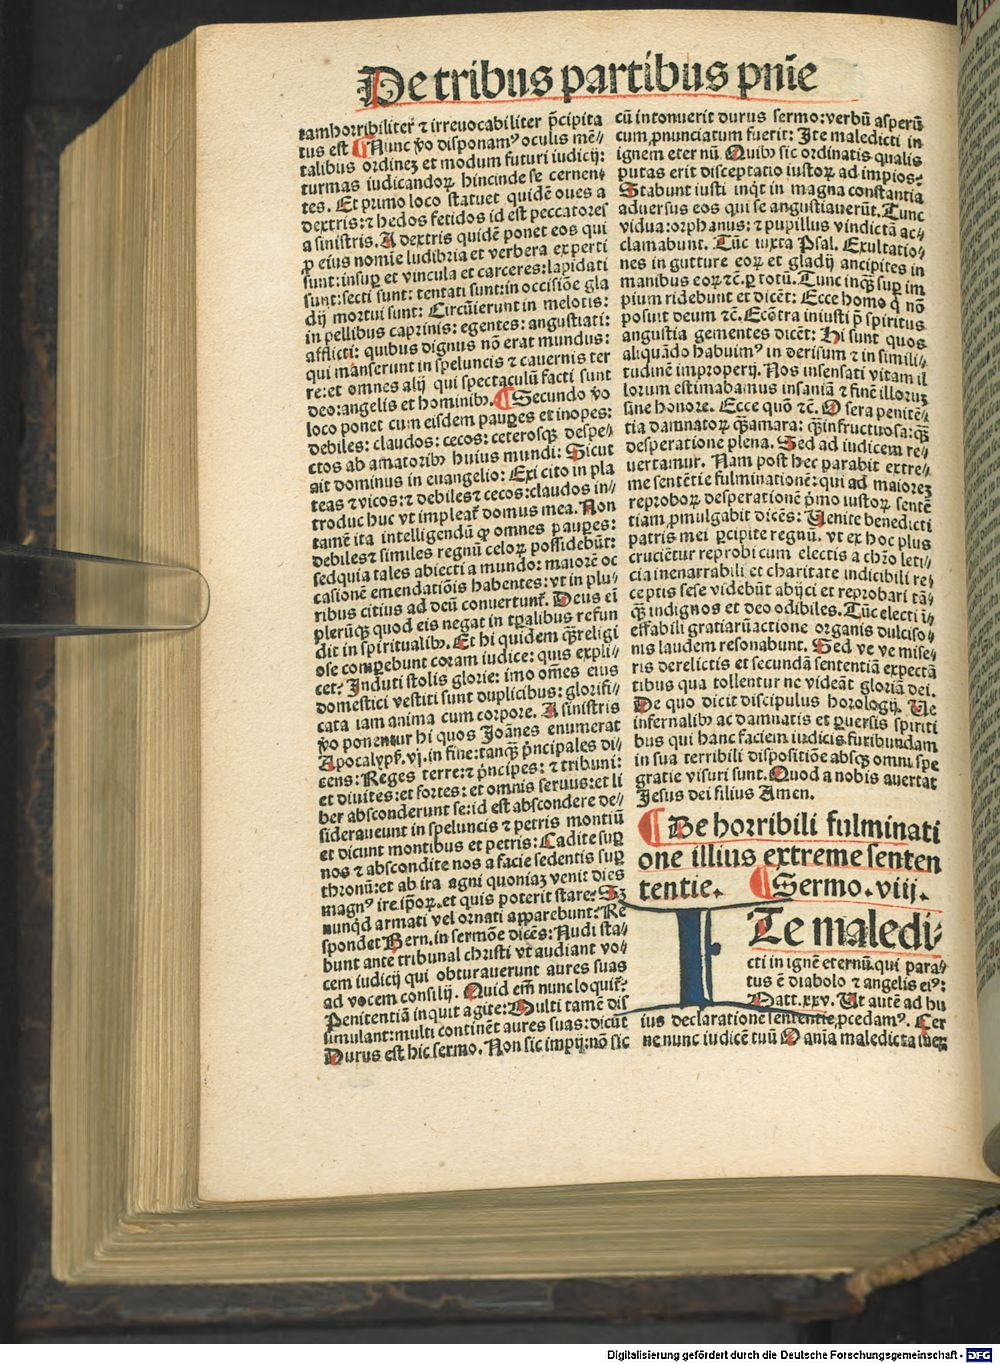 De tribus partibus pnīe
tamhorribiliter ⁊ irreuocabiliter p̄cipita
tus est ¶ Nunc ꝟo disponamꝰ oculis mē⸗
talibus ordinez et modum futuri iudicij:
turmas iudicandoꝝ hincinde se cernen⸗
tes. Et primo loco statuet quidē oues a
dextris: ⁊ hedos fetidos id est peccatores
a sinistris. A dextris quidē ponet eos qui
ꝓ eius nomīe ludibria et verbera experti
sunt: insuꝑ et vincula et carceres: lapidati
sunt: secti sunt: tentati sunt: in occisiōe gla
dij mortui sunt: Circūierunt in melotis:
in pellibus caprinis: egentes: angustiati:
afflicti: quibus dignus nō erat mundus:
qui manserunt in speluncis ⁊ cauernis ter
re: et omnes alij qui spectaculū facti sunt
deo: angelis et hominibꝫ. ¶ Secundo ꝟo
loco ponet cum eisdem pauꝑes et inopes:
debiles: claudos: cecos: ceterosqꝫ despe⸗
ctos ab amatoribꝫ huius mundi: Sicut
ait dominus in euangelio: Exi cito in pla
teas ⁊ vicos: ⁊ debiles ⁊ cecos: claudos in⸗
troduc huc vt impleat̄ domus mea. Non
tamē ita intelligendū ꝙ omnes pauꝑes:
debiles ⁊ similes regnū celoꝝ possidebūt:
sed quia tales abiecti a mundo: maiorē oc
casionē emendatiōis habentes: vt in plu⸗
ribus citius ad deū conuertunt̄. Deus em̄
plerūqꝫ quod eis negat in tꝑalibus refun
dit in spiritualibꝫ. Et hi quidem q̄ꝫ religi
ose comparebunt coram iudice: quis expli⸗
cet? Induti stolis glorie: imo om̄es eius
domestici vestiti sunt duplicibus: glorifi⸗
cata iam anima cum corpore. A sinistris
ꝟo ponentur hi quos Joānes enumerat
Apocalyps̄. vj. in fine: tanqꝫ p̄ncipales di⸗
cens: Reges terre: ⁊ p̄ncipes: ⁊ tribuni:
et diuites: et fortes: et omnis seruus: et li
ber absconderunt se: id est abscondere de⸗
siderauerunt in speluncis ⁊ petris montiū
et dicunt montibus et petris: Cadite suꝑ
nos ⁊ abscondite nos a facie sedentis suꝑ
thronū: et ab ira agni quoniaꝫ venit dies
magnꝰ ire ip̄oꝝ. et quis poterit stare? Sꝫ
nunqd̄ armati vel ornati apparebunt? Re
spondet Bern. in sermōe dicēs: Nudi sta⸗
bunt ante tribunal christi vt audiant vo⸗
cem iudicij qui obturauerunt aures suas
ad vocem consilij. Quid em̄ nunc loquit̄?
Penitentiā inquit agite: Multi tamē dis
simulant: multi continēt aures suas: dicūt
Durus est hic sermo. Non sic impij: nō sic
cū intonuerit durus sermo: verbū asperū
cum ꝓnunciatum fuerit: Ite maledicti in
ignem eternū. Quibꝫ sic ordinatis qualis
putas erit disceptatio iustoꝝ ad impios?
Stabunt iusti inqͥt in magna constantia
aduersus eos qui se angustiauerūt. Tunc
vidua: orphanus: ⁊ pupillus vindictā ac⸗
clamabunt. Tūc iuxta Psal. Exultatio⸗
nes in gutture eoꝝ et gladij ancipites in
manibus eoꝝ ⁊c̄. ꝑ totū. Tunc inqꝫ suꝑ im
pium ridebunt et dicēt: Ecce homo q̇ nō
posuit deum ⁊c̄. Ecōtra iniusti p̄ spiritus
angustia gementes dicēt: Hi sunt quos
aliquādo habuimꝰ in derisum ⁊ in simili⸗
tudinē improperij. Nos insensati vitam il
lorum estimabamus insaniā ⁊ finē illoruꝫ
sine honore. Ecce quō ⁊c̄. O sera penitē⸗
tia damnatoꝝ q̄ꝫ amara: q̄ꝫ infructuosa: q̄ꝫ
desperatione plena. Sed ad iudicem re⸗
uertamur. Nam post hec parabit extre⸗
me sentētie fulminationē: qui ad maioreꝫ
reproboꝝ desperationē p̄mo iustoꝝ sentē
tiam ꝓmulgabit dicēs: Uenite benedicti
patris mei ꝑcipite regnū. vt ex hoc plus
crucientur reprobi cum electis a chro leti⸗
cia inenarrabili et charitate indicibili re⸗
ceptis sese videbūt abijci et reprobari tā⸗
q̄ꝫ indignos et deo odibiles. Tūc electi in⸗
effabili gratiarūactione organis dulciso⸗
nis laudem resonabunt. Sed ve ve mise⸗
ris derelictis et secundā sententiā expectā
tibus qua tollentur ne videāt gloriā dei.
De quo dicit discipulus horologij. Ue
infernalibꝫ ac damnatis et ꝑuersis spiriti
bus qui hanc faciem iudicis furibundam
in sua terribili dispositiōe absqꝫ omni spe
gratie visuri sunt. Quod a nobis auertat
Jesus dei filius Amen.
¶ De horribili fulminati
one illius extreme senten
tentie. ¶ Sermo. viij.
ITe maledi⸗
cti in ignē eternū. qui para⸗
tus ē diabolo ⁊ angelis eiꝰ:
Matt. xxv. Ut autē ad hu
ius declaratione sententie, ꝓcedamꝰ. Cer
ne nunc iudicē tuū O anīa maledicta
Digitalisierung gefördert durch die Deutsche Forschungsgemeinschaft - DFG